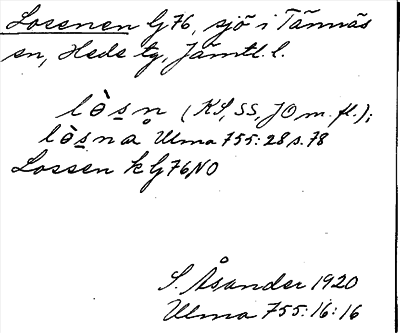 Losenen G76, sjö i Tännäs
sn, Hede tg, Jämtl. l.
lòs̠n̥ (KS, SS, JO m. fl.);
lòs̠nå Ulma 755:28 s.78
Lossen k G76NO
S. Åsander 1920
Ulma 755:16:16